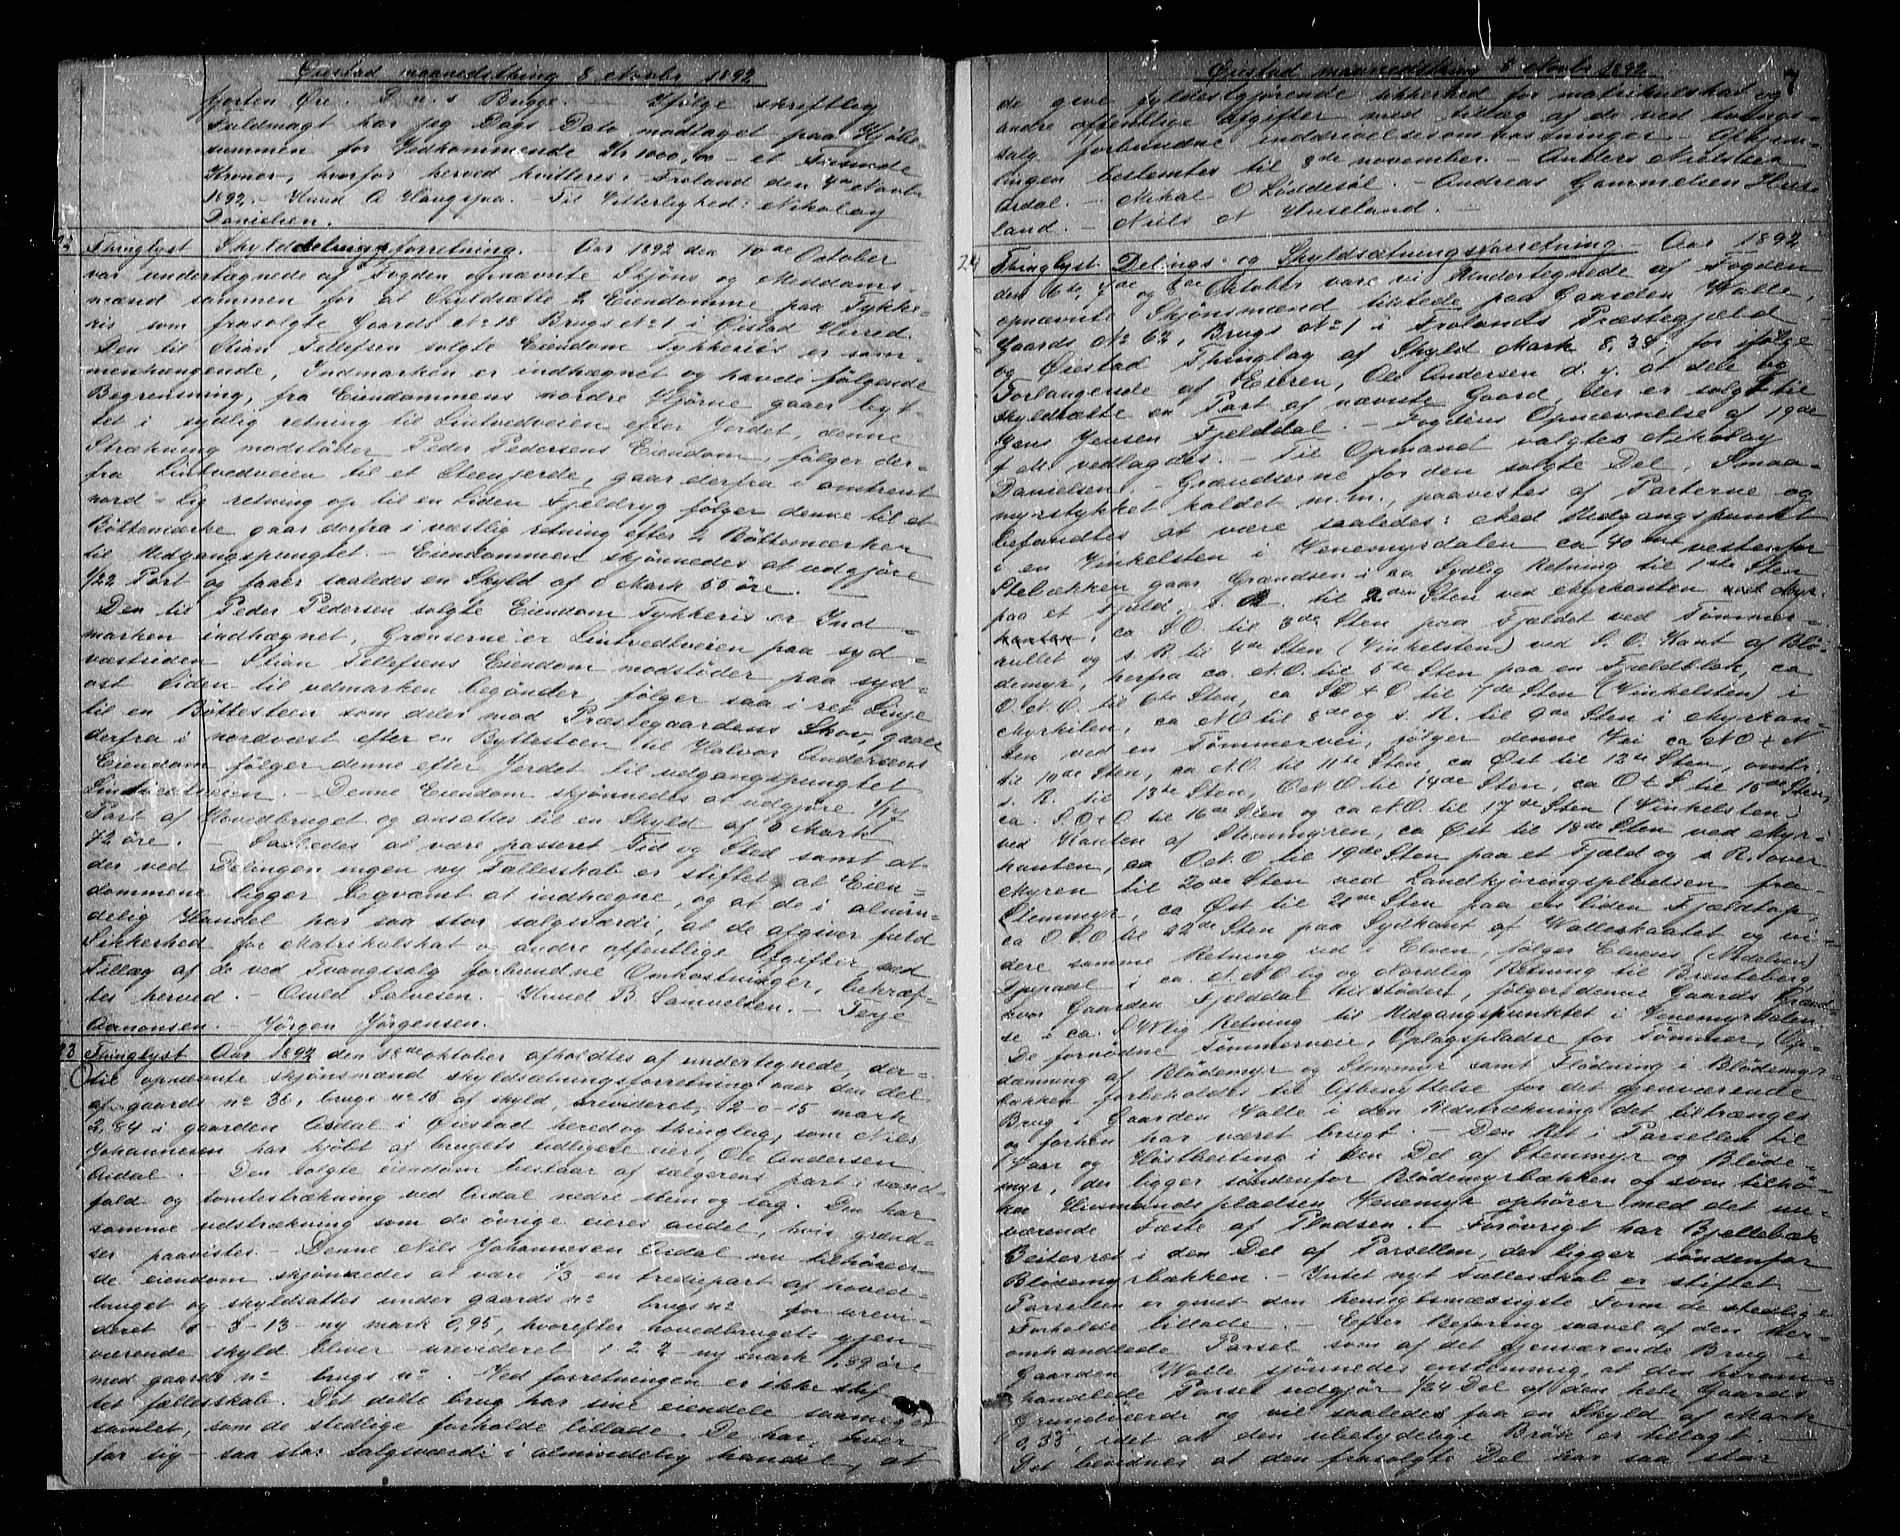 Øiestad maanedsthing 8 Novbr 1892
fjorten Øre. D. u. s Brygge. Ifølge skriftlig
Fuldmagt har jeg Dags Dato modtaget paa Kjøbe-
summen for Vedkommende Kr 1000,00 - et Tusinde
Kroner, hvorfor herved kvitteres. - Froland den 4de Novbr
1892. - Knud A Haugsjaa. - Til Vitterlighed: Nikolay
Danielsen.
Thinglyst Skylddelingsforretning. Aar 1892 den 10de October
var undertegnede af Fogden opnævnte Skjøns og Meddoms-
mænd sammen for at Skyldsætte 2 Eiendomme paa Lykke-
ris som frasolgte Gaards No 18 Brugs No 1 i Øiestad Herred.
Den til Stian Tellefsen solgte Eiendom Lykkeriis er sam-
menhængende, Indmarken er indhægnet og havde følgende
Begrensning, fra Eiendommens nordre Hjørne gaaer byt-
tet i sydlig retning til Lintvedveien efter Jordet, denne
Strækning modstøder Peder Pedersens Eiendom, følger der-
fra Lintvedveien til et Steengjerde, gaar derfra i omtrent
nord-lig retning op til en Liden Fjeldryg følger denne til et
Böttemærke gaar derfra i vestlig retning efter 2 Böttemærker
til Udgangspungtet. - Eiendommen skjønnedes at udgjøre
1/22 Part og faaer saaledes en Skyld af 0 Mark 55 øre.
Den til Peder Pedersen solgte Eiendom Lykkeris er Ind-
marken indhægnet, Grænserne er Lintvedtveien paa syd-
vestsiden Stian Tellefsens Eiendom modstöder paa syd-
ost Siden til udmarken begønder, følger saa i ret Linje
til en Böttesteen som deler mod Præstegaardens Skov, gaaer
derfra i nordvest efter en Byttesteen til Halvor Andersens
Eiendom følger denne efter Jordet til udgangspungtet
Lintvedtveien. - Denne Eiendom skjønnedes at udgjøre 1/17
Part af Hovedbruget og ansattes til en Skyld af 0 Mark
72 øre. - Saaledes at være passeret Tid og Sted samt at
der ved Delingen ingen ny Fællesskab er stiftet, at Eien-
dommene ligger beqvæmt at indhægne, og at de i almin-
delig Handel har saa stor salgsværdi, at de afgiver fuld
Sikkerhed for Matrikulskat og andre offentlige Afgifter med
Tillæg af de ved Tvangssalg forbundne Omkostninger, bekræf-
tes herved. - Omld Salvesen. Knud B. Samuelsen. - Terje
Aanonsen. Jörgen Jörgensen.
23 Thinglyst Aar 1892 den 18de oktober afholdtes af undertegnede, der-
til opnævnte skjønsmænd skyldsætningsforretning over den del
af gaards no 38, brugs no 16 af skyld, urevideret, 2-0-15 mark
2,84 i gaarden Asdal i Øiestad hered og thinglag, som Niels
Johannesen har kjøbt af brugets tidligere eier, Ole Andersen
Asdal. - Den solgte eiendom bestaar af sælgerens part i vand-
fald og tomtestrækning ved Asdal nedre stem og sag. Den har
samme udstrækning som de øvrige eieres andel, hvis grænd-
ser paavistes. - Denne Nils Johannesen Asdal nu tilhøren-
de eiendom skjønnedes at være 1/3 en trediepart af hoved-
bruget og skyldsattes under gaards no brugs no for urevi-
deret 0-3-13 - ny mark 0,95, hvorefter hovedbrugets gjen-
værende skyld bliver urevideret 1 2 2 - ny mark 1,89 øre
med gaards no brugs no. Ved forretningen er ikke stif-
tet fællesskab. Det delte brug har sine eiendele saameget
samlet, som de stedlige forholde tillade. De har, hver
for sig - saa stor salgsværdi i almindelig handel, at
Øiestad maanedsthing 8 Novbr 1892
7
de give fyldestgjørende sikkerhed for matrikulskat og
andre offentlige afgifter med tillæg af de ved tvangs-
salg forbundne inddrivelsesomkostninger. - Afhjem-
lingen bestemtes til 8de november. - Anders Nielsen
Asdal. - Mikal O Løddesøl. - Andreas Gammelsen Huse-
land. - Niels N Huseland.
24 Thinglyst Delings- og Skyldsætningsforretning - Aar 1892
den 6te, 7de og 8de Oktober vare vi Undertegnede af Fogden
opnævnte Skjønsmænd tilstede paa Gaarden Valle,
Gaards No 62, Brugs No 1 i Frolands Præstegjæld
og Øiestad Thinglag af Skyld Mark 8,38, for ifølge
Forlangende af Eieren, Ole Andersen d. y. at dele og
skyldsætte en Part af nævnte Gaard, der er solgt til
Jens Jensen Fjelddal. - Fogdens Opnævnelse af 19de
f. M. vedlagdes. - Til Opmand valgtes Nikolay
Danielsen. - Grændserne for den solgte Del, Smaa-
myrstykket kaldet m. m., paavistes af Parterne og
befandtes at være saaledes: Med Udgangspunkt
i en Vinkelsten i Venemyrsdalen ca 40 mtr vestenfor
Stebækken gaar Grændsen i ca Sydlig Retning til 1ste Sten
paa et Fjeld, s. R. til 2den Sten ved Myrkanten
ca S.O. til 3de Sten paa Fjeldet ved Tømmer-
rullet og s. R. til 4de Sten (Vinkelsten) ved S. O. Kant af Blø-
demyr, herfra ca. N.O. til 5te Sten paa en Fjeldblok, ca
O.t.N.O. til 6te Sten, ca S.O.t.O til 7de Sten (Vinkelsten) i
Myrkilen, ca N.O til 8de og s. R. til 9de Sten i Myrkan-
ten ved en Tømmervei, følger denne Vei ca N.O.t.N
til 10de Sten, ca N.O. til 11te Sten, ca Øst til 12te Sten, omtr.
s. R. til 13de Sten, O.t.N.O til 14de Sten, ca O.t.S. til 15de Sten,
ca. S.O.t.O til 16de Sten og ca N.O. til 17de Sten (Vinkelsten)
ved Kanten af Stemmyren, ca Øst til 18de Sten ved Myr-
kanten, ca O.t.N.O til 19de Sten paa et Fjeld og s R. over
Myren til 20de Sten ved Landkjøringspladsen fra
Stemmyr, ca Øst til 21de Sten paa en liden Fjeldtop,
ca O.S.O til 22de Sten paa Sydkant af Valleskaatet og vi-
dere samme Retning ud i Elven, følger Elvens (Nidelven)
Djupaal i ca. N.N.O lig og Nordlig Retning til Brenteberg
hvor Gaarden Fjelddal tilstøder, følger denne Gaards Grænd-
se i ca. S.V.lig Retning til Udgangspunktet i Venemyrdalen.
De fornødne Tømmerveie, Oplagspladse for Tømmer, Op-
dæmning af Blødemyr og Stemmyr samt Flødning i Blødemyr-
bækken forbeholdes til Afbenyttelse for det gjenværende
Brug i Gaarden Valle i den Udstrækning det tiltrænges
og forhen har været brugt. - Den Ret i Parsellen til
Vaar og Høstbeiting i den Del af Stemmyr og Bløde-
myr, der ligger søndenfor Blødemyrbækken og som tilhø-
rer Husmandspladsen Venemyr ophører med det nu-
værende Fæste af Pladsen. - Forøvrigt har Bjellebæk
Beitesret i den Del af Parsellen, der ligger søndenfor
Blødemyrbækken. - Intet nyt Fællesskab er stiftet.
Parsellen er givet den hensigtsmæssigste Form de stedlige
Forholde tillade. - Efter Befaring saavel af den her-
omhandlede Parsel som af det gjenværende Brug i
Gaarden Valle sjønnedes enstemmig, at den herom-
handlede Parsel udgjør 1/24 Del af den hele Gaards
Grundværdi og vil saaledes faa en Skyld af Mark
0,35, idet at den ubetydelige Brøk er tillagt. -
Det bevidnes at den frasolgte Del har saa stor